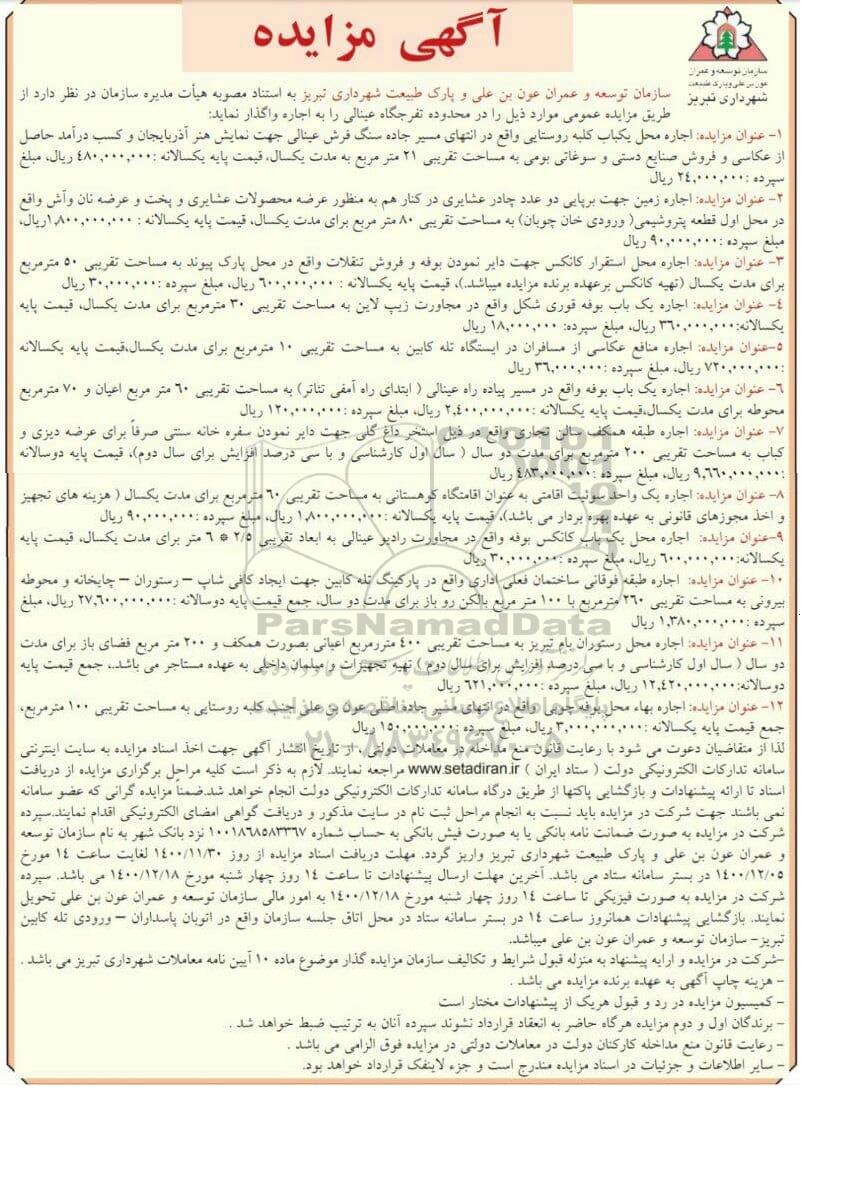 آگهی مزایده
سازمان توسعه و عمران
عون بن علی و پارک طبیعت
شهرداری تبریز
سازمان توسعه و عمران عون بن علی و پارک طبیعت شهرداری تبریز به استناد مصوبه هیأت مدیره سازمان در نظر دارد از
طریق مزایده عمومی موارد ذیل را در محدوده تفرجگاه عینالی را به اجاره واگذار نماید:
۱- عنوان مزایده: اجاره محل یکباب کلبه روستایی واقع در انتهای مسیر جاده سنگ فرش عینالی جهت نمایش هنر آذربایجان و کسب درآمد حاصل
از عکاسی و فروش صنایع دستی و سوغاتی بومی به مساحت تقریبی ۲۱ متر مربع به مدت یکسال، قیمت پایه یکسالانه :۴۸۰,۰۰۰,۰۰۰ ریال، مبلغ
سپرده :۲۴,۰۰۰,۰۰۰ ریال
۲- عنوان مزایده: اجاره زمین جهت برپایی دو عدد چادر عشایری در کنار هم به منظور عرضه محصولات عشایری و پخت و عرضه نان وآش واقع
در محل اول قطعه پتروشیمی( ورودی خان چوبان) به مساحت تقریبی ۸۰ متر مربع برای مدت یکسال، قیمت پایه یکسالانه : ۱,۸۰۰,۰۰۰,۰۰۰ریال،
مبلغ سپرده :۹۰,۰۰۰,۰۰۰ ریال
۳- عنوان مزایده: اجاره محل استقرار کانکس جهت دایر نمودن بوفه و فروش تنقلات واقع در محل پارک پیوند به مساحت تقریبی ۵۰ مترمربع
برای مدت یکسال (تهیه کانکس برعهده برنده مزایده میباشد.)، قیمت پایه یکسالانه : ۶۰۰,۰۰۰,۰۰۰ ریال، مبلغ سپرده :۳۰,۰۰۰,۰۰۰ ریال
۴- عنوان مزایده: اجاره یک باب بوفه قوری شکل واقع در مجاورت زیپ لاین به مساحت تقریبی ۳۰ مترمربع برای مدت یکسال، قیمت پایه
یکسالانه:۳۶۰,۰۰۰,۰۰۰ ریال، مبلغ سپرده: ۱۸,۰۰۰,۰۰۰ ریال
۵-عنوان مزایده: اجاره منافع عکاسی از مسافران در ایستگاه تله کابین به مساحت تقریبی ۱۰ مترمربع برای مدت یکسال،قیمت پایه یکسالانه
:۷۲۰,۰۰۰,۰۰۰ ریال، مبلغ سپرده :۳۶,۰۰۰,۰۰۰ ریال
۶- عنوان مزایده: اجاره یک باب بوفه واقع در مسیر پیاده راه عینالی ( ابتدای راه آمفی تئاتر) به مساحت تقریبی ۶۰ متر مربع اعیان و ۷۰ مترمربع
محوطه برای مدت یکسال،قیمت پایه یکسالانه :۲,۴۰۰,۰۰۰,۰۰۰ ریال، مبلغ سپرده :۱۲۰,۰۰۰,۰۰۰ ریال
۷- عنوان مزایده: اجاره طبقه همکف سالن تجاری واقع در ذیل استخر داغ گلی جهت دایر نمودن سفره خانه سنتی صرفاً برای عرضه دیزی و
کباب به مساحت تقریبی ۲۰۰ مترمربع برای مدت دو سال ( سال اول کارشناسی و با سی درصد افزایش برای سال دوم)، قیمت پایه دوسالانه
:۹,۶۶۰,۰۰۰,۰۰۰ ریال، مبلغ سپرده :۴۸۳,۰۰۰,۰۰۰ ریال
۸- عنوان مزایده: اجاره یک واحد سوئیت اقامتی به عنوان اقامتگاه کوهستانی به مساحت تقریبی ۶۰ مترمربع برای مدت یکسال ( هزینه های تجهیز
و اخذ مجوزهای قانونی به عهده بهره بردار می باشد)، قیمت پایه یکسالانه :۱,۸۰۰,۰۰۰,۰۰۰ ریال، مبلغ سپرده :۹۰,۰۰۰,۰۰۰ ریال
۹-عنوان مزایده: اجاره محل یک باب کانکس بوفه واقع در مجاورت رادیو عینالی به ابعاد تقریبی ۲/۵ * ۶ متر برای مدت یکسال، قیمت پایه
یکسالانه:۶۰۰,۰۰۰,۰۰۰ ریال، مبلغ سپرده :۳۰,۰۰۰,۰۰۰ ریال
۱۰- عنوان مزایده: اجاره طبقه فوقانی ساختمان فعلی اداری واقع در پارکینگ تله کابین جهت ایجاد کافی شاپ – رستوران – چایخانه و محوطه
بیرونی به مساحت تقریبی ۲۶۰ مترمربع با ۱۰۰ متر مربع بالکن رو باز برای مدت دو سال، جمع قیمت پایه دوسالانه :۲۷,۶۰۰,۰۰۰,۰۰۰ ریال، مبلغ
سپرده :۱,۳۸۰,۰۰۰,۰۰۰ ریال
ParsNamadData
۱۱- عنوان مزایده: اجاره محل رستوران بام تبریز به مساحت تقریبی ۴۰۰ متررمربع اعیانی بصورت همکف و ۲۰۰ متر مربع فضای باز برای مدت
دو سال ( سال اول کارشناسی و با سی درصد افزایش برای سال دوم ) تهیه تجهیزات و مبلمان داخلی به عهده مستاجر می باشد.، جمع قیمت پایه
دوسالانه:۱۲,۴۲۰,۰۰۰,۰۰۰ ریال، مبلغ سپرده :۶۲۱,۰۰۰,۰۰۰ ریال
۱۲- عنوان مزایده: اجاره بهاء محل بوفه چوبی واقع در انتهای مسیر جاده اصلی عون بن علی جنب کلبه روستایی به مساحت تقریبی ۱۰۰ مترمربع،
جمع قیمت پایه یکسالانه :۳,۰۰۰,۰۰۰,۰۰۰ ریال، مبلغ سپرده :۱۵۰,۰۰۰,۰۰۰ ریال
لذا از متقاضیان دعوت می شود با رعایت قانون منع مداخله در معاملات دولتی ، از تاریخ انتشار آگهی جهت اخذ اسناد مزایده به سایت اینترنتی
سامانه تدارکات الکترونیکی دولت ( ستاد ایران ) www.setadiran.ir مراجعه نمایند. لازم به ذکر است کلیه مراحل برگزاری مزایده از دریافت
اسناد تا ارائه پیشنهادات و بازگشایی پاکتها از طریق درگاه سامانه تدارکات الکترونیکی دولت انجام خواهد شد.ضمناً مزایده گرانی که عضو سامانه
نمی باشند جهت شرکت در مزایده باید نسبت به انجام مراحل ثبت نام در سایت مذکور و دریافت گواهی امضای الکترونیکی اقدام نمایند.سپرده
شرکت در مزایده به صورت ضمانت نامه بانکی یا به صورت فیش بانکی به حساب شماره ۱۰۰۱۸۶۸۵۸۳۳۶۷ نزد بانک شهر به نام سازمان توسعه
و عمران عون بن علی و پارک طبیعت شهرداری تبریز واریز گردد. مهلت دریافت اسناد مزایده از روز ۱۴۰۰/۱۱/۳۰ لغایت ساعت ۱۴ مورخ
۱۴۰۰/۱۲/۰۵ در بستر سامانه ستاد می باشد. آخرین مهلت ارسال پیشنهادات تا ساعت ۱۴ روز چهار شنبه مورخ ۱۴۰۰/۱۲/۱۸ می باشد. سپرده
شرکت در مزایده به صورت فیزیکی تا ساعت ۱۴ روز چهار شنبه مورخ ۱۴۰۰/۱۲/۱۸ به امور مالی سازمان توسعه و عمران عون بن علی تحویل
نمایند. بازگشایی پیشنهادات همانروز ساعت ۱۴ در بستر سامانه ستاد در محل اتاق جلسه سازمان واقع در اتوبان پاسداران – ورودی تله کابین
تبریز- سازمان توسعه و عمران عون بن علی میباشد.
-شرکت در مزایده و ارایه پیشنهاد به منزله قبول شرایط و تکالیف سازمان مزایده گذار موضوع ماده ۱۰ آیین نامه معاملات شهرداری تبریز می باشد .
- هزینه چاپ آگهی به عهده برنده مزایده می باشد .
- کمیسیون مزایده در رد و قبول هریک از پیشنهادات مختار است
- برندگان اول و دوم مزایده هرگاه حاضر به انعقاد قرارداد نشوند سپرده آنان به ترتیب ضبط خواهد شد .
- رعایت قانون منع مداخله کارکنان دولت در معاملات دولتی در مزایده فوق الزامی می باشد .
- سایر اطلاعات و جزئیات در اسناد مزایده مندرج است و جزء لاینفک قرارداد خواهد بود.